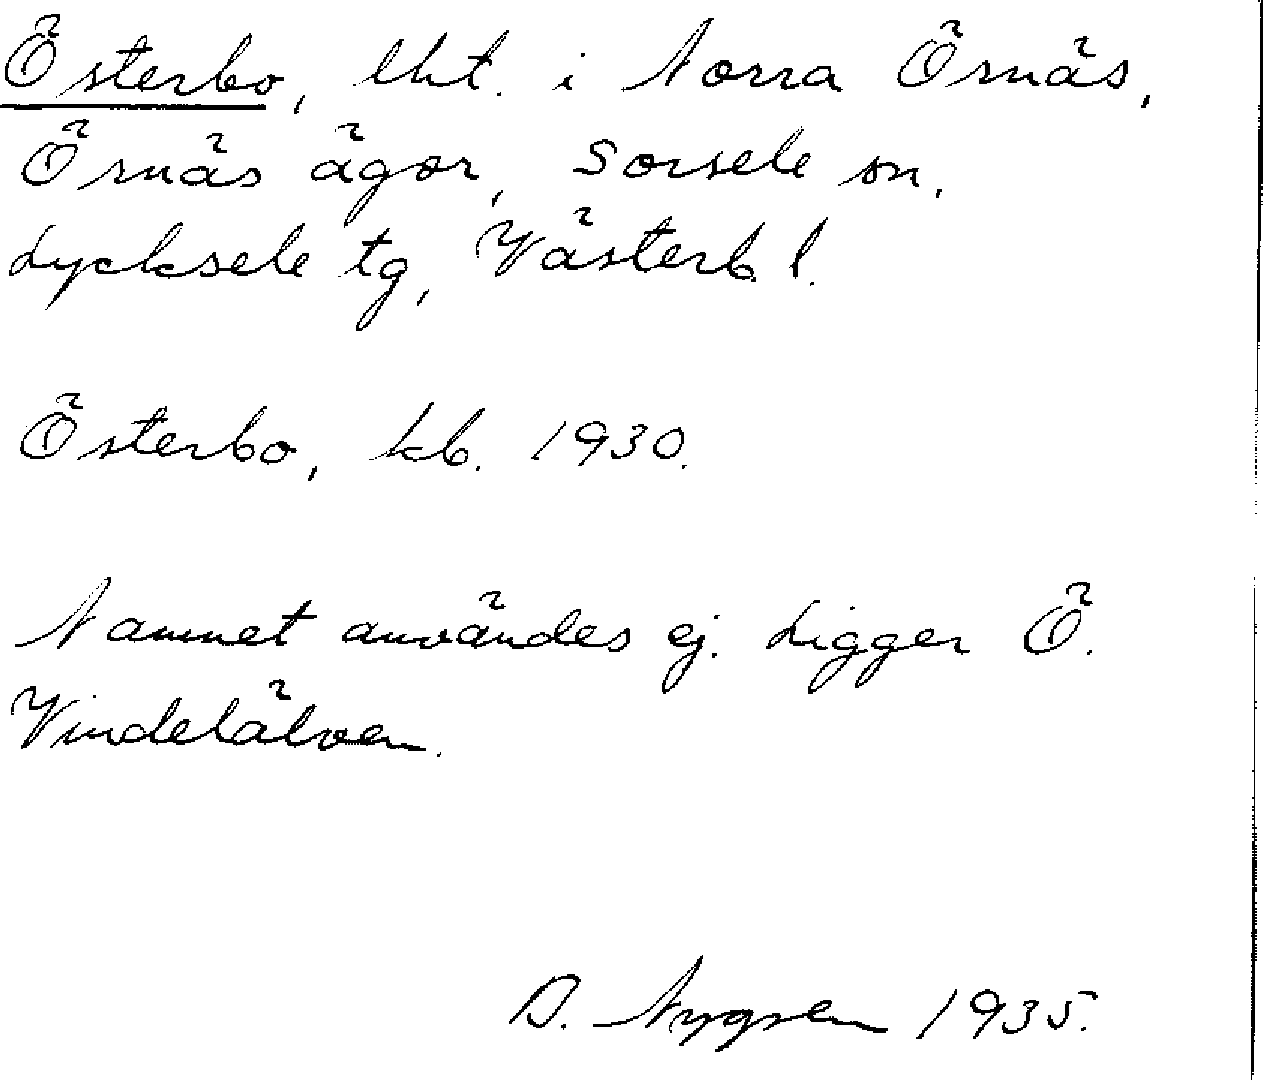 Österbo, lht. i Norra Örnäs,
Örnäs ägor, Sorsele sn,
Lycksele tg, Västerb. l.
Österbo, kb. 1930.
Namnet användes ej. Ligger Ö.
Vindelälven.
D. Nygren 1935.